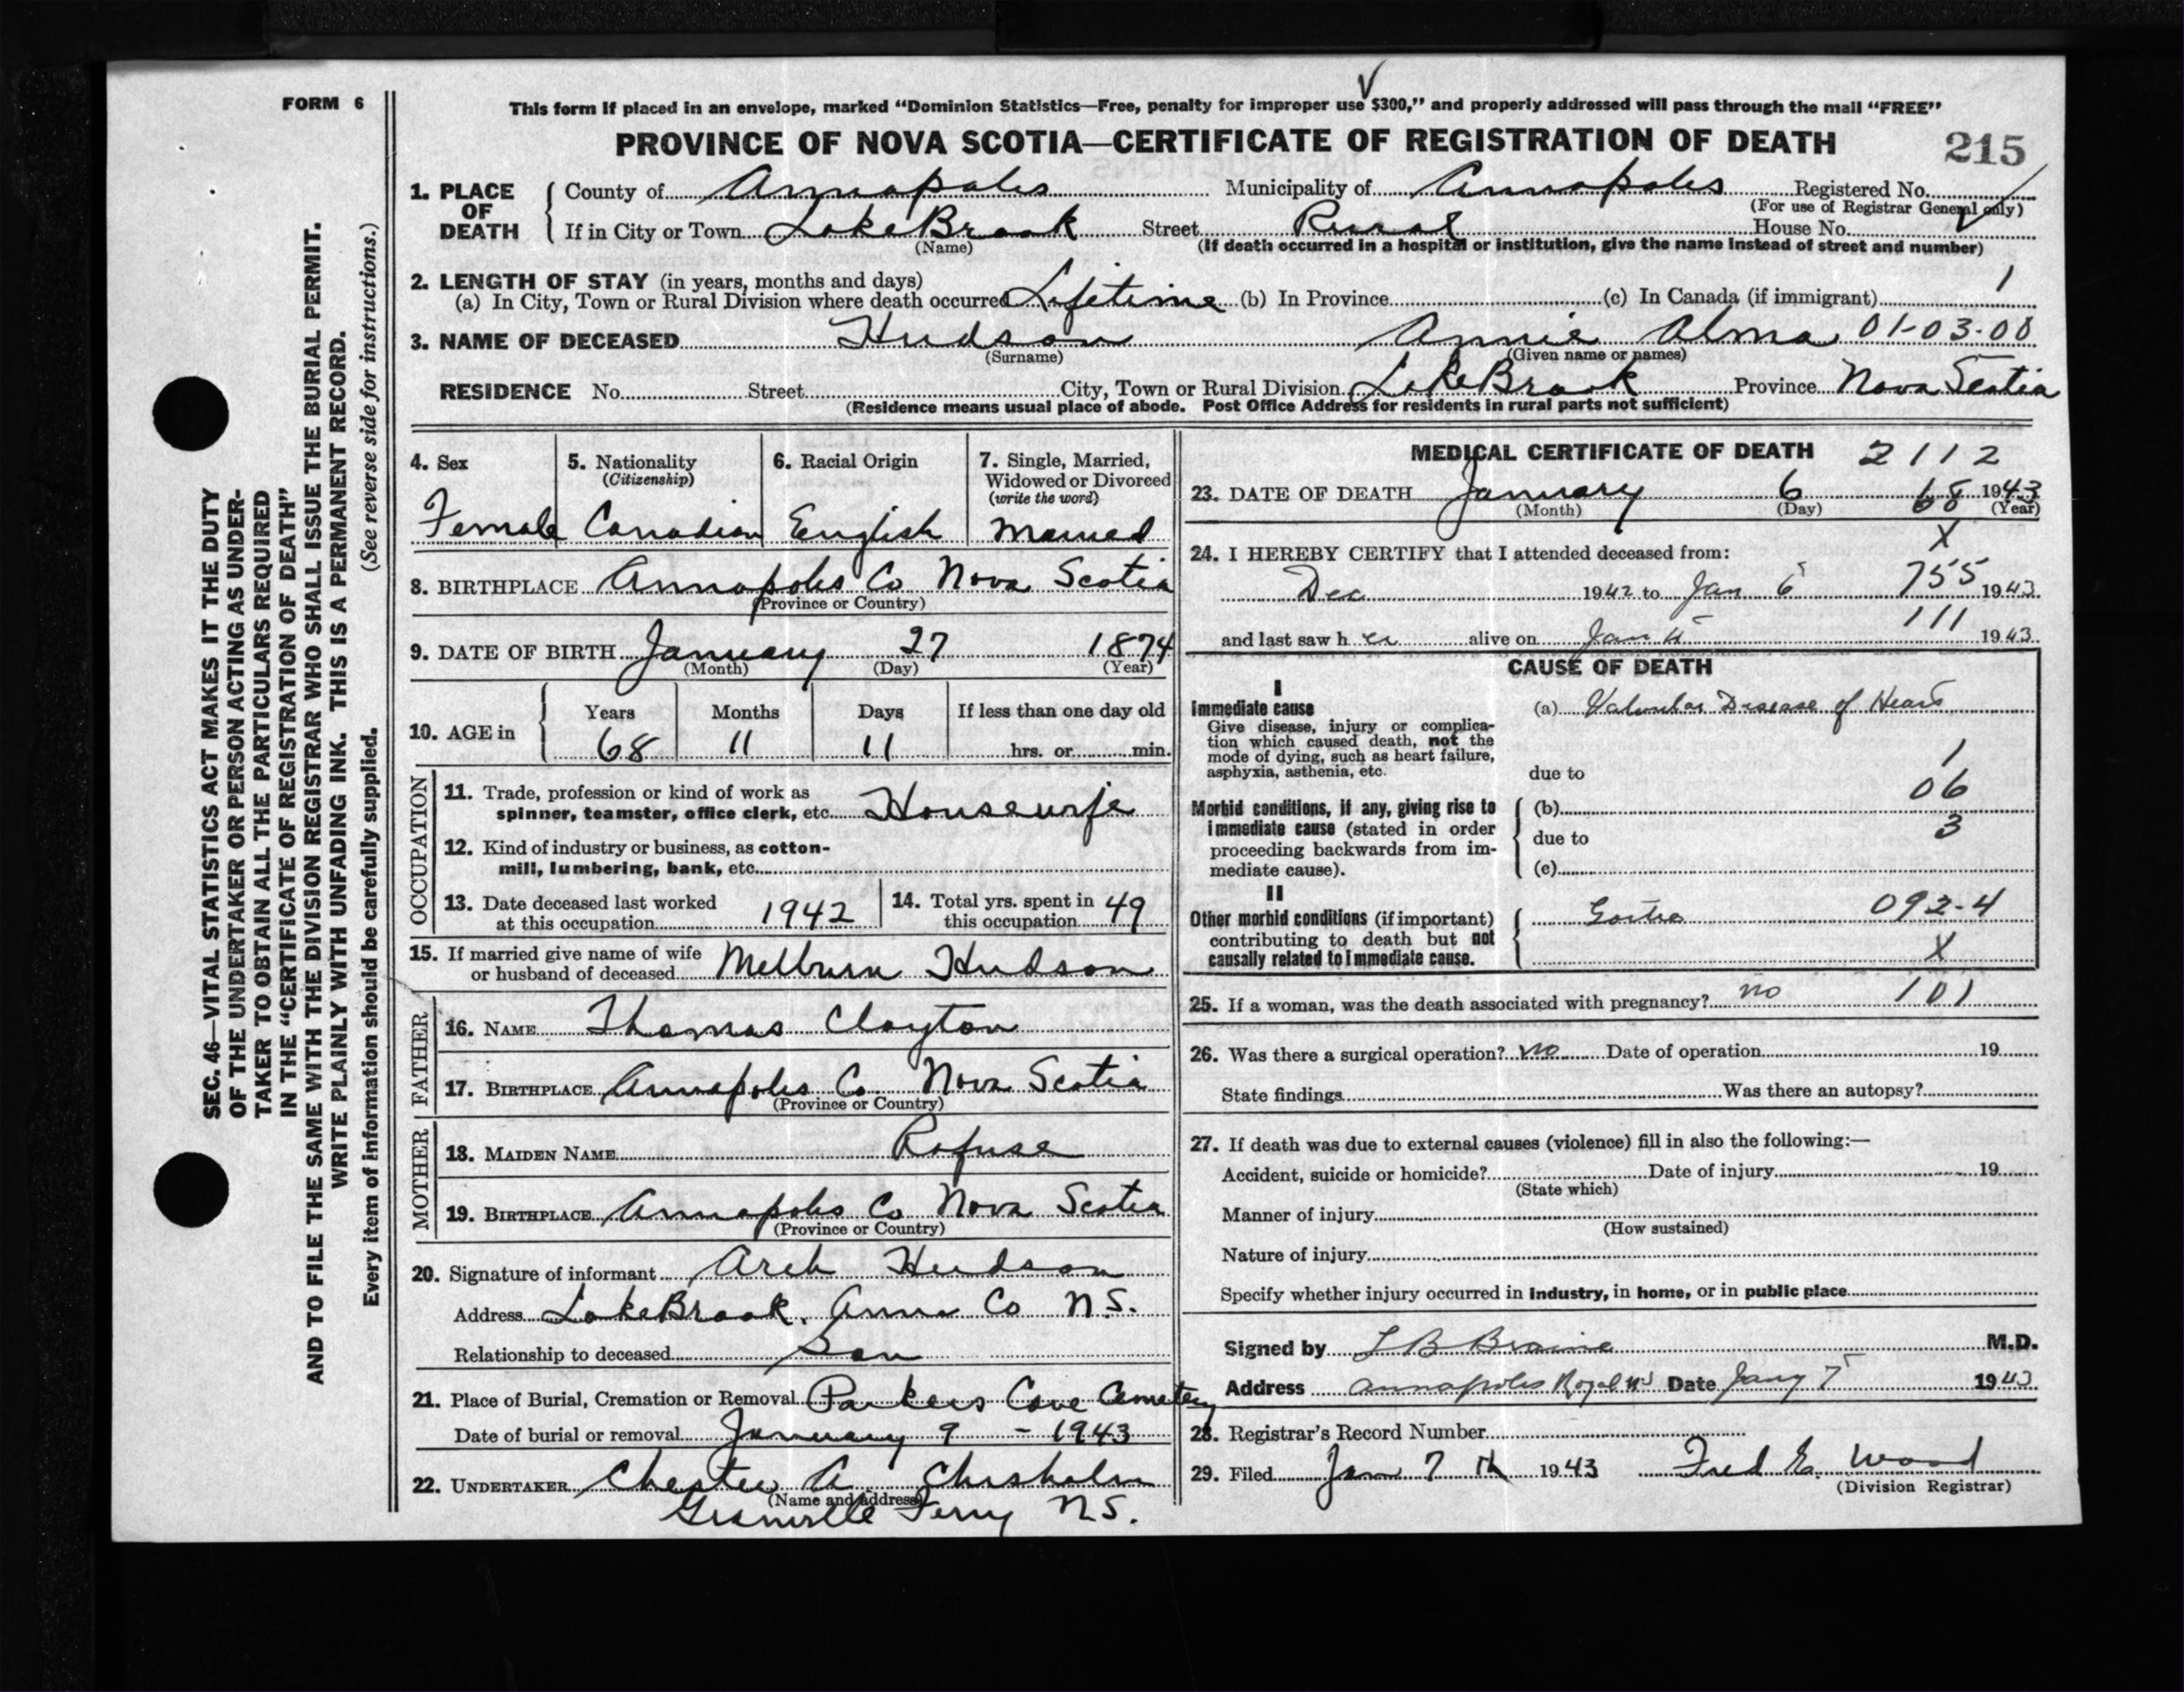 FORM 6
This form if placed in an envelope, marked “Dominion Statistics—Free, penalty for improper use $300,” and properly addressed will pass through the mail “FREE”
PROVINCE OF NOVA SCOTIA—CERTIFICATE OF REGISTRATION OF DEATH 215
SEC. 46—VITAL STATISTICS ACT MAKES IT THE DUTY
OF THE UNDERTAKER OR PERSON ACTING AS UNDER-
TAKER TO OBTAIN ALL THE PARTICULARS REQUIRED
IN THE “CERTIFICATE OF REGISTRATION OF DEATH”
AND TO FILE THE SAME WITH THE DIVISION REGISTRAR WHO SHALL ISSUE THE BURIAL PERMIT.
WRITE PLAINLY WITH UNFADING INK. THIS IS A PERMANENT RECORD.
Every item of information should be carefully supplied. (See reverse side for instructions.)
1. PLACE OF DEATH County of Annapolis Municipality of Annapolis Registered No.
(For use of Registrar General only)
If in City or Town Lake Brook Street Rural House No.
(Name) (If death occurred in a hospital or institution, give the name instead of street and number)
2. LENGTH OF STAY (in years, months and days) 1
(a) In City, Town or Rural Division where death occurred Lifetime (b) In Province (c) In Canada (if immigrant)
3. NAME OF DECEASED Hudson Annie Alma 01-03-00
(Surname) (Given name or names)
RESIDENCE No. Street City, Town or Rural Division Lake Brook Province Nova Scotia
(Residence means usual place of abode. Post Office Address for residents in rural parts not sufficient)
4. Sex 5. Nationality 6. Racial Origin 7. Single, Married,
(Citizenship) Widowed or Divorced
(write the word)
Female Canadian English Married
8. BIRTHPLACE Annapolis Co Nova Scotia
(Province or Country)
9. DATE OF BIRTH January 27 1874
(Month) (Day) (Year)
10. AGE in Years Months Days If less than one day old
68 11 11 hrs. or min.
OCCUPATION
11. Trade, profession or kind of work as
spinner, teamster, office clerk, etc. Housewife
12. Kind of industry or business, as cotton-
mill, lumbering, bank, etc.
13. Date deceased last worked 14. Total yrs. spent in
at this occupation 1942 this occupation 49
15. If married give name of wife
or husband of deceased Melburn Hudson
FATHER
16. NAME Thomas Clayton
17. BIRTHPLACE Annapolis Co. Nova Scotia
(Province or Country)
MOTHER
18. MAIDEN NAME Rafuse
19. BIRTHPLACE Annapolis Co Nova Scotia
(Province or Country)
20. Signature of informant Arch Hudson
Address Lake Brook, Anna Co N.S.
Relationship to deceased Son
21. Place of Burial, Cremation or Removal Parkers Cove Cemetery
Date of burial or removal January 9 - 1943
22. UNDERTAKER Chester A Chisholm
(Name and address)
Granville Ferry N.S.
MEDICAL CERTIFICATE OF DEATH 2112
23. DATE OF DEATH January 6 18 1943
(Month) (Day) 68 (Year)
24. I HEREBY CERTIFY that I attended deceased from: X
Dec 1942 to Jan 6 755 1943
111
and last saw her alive on Jan 4 1943
CAUSE OF DEATH
I
Immediate cause (a) Valvular Disease of Heart
Give disease, injury or complica-
tion which caused death, not the
mode of dying, such as heart failure,
asphyxia, asthenia, etc. due to 1
06
Morbid conditions, if any, giving rise to (b)
immediate cause (stated in order due to 3
proceeding backwards from im-
mediate cause). (c)
II
Other morbid conditions (if important) Goitre 092-4
contributing to death but not
causally related to immediate cause. X
25. If a woman, was the death associated with pregnancy? no 101
26. Was there a surgical operation? no Date of operation 19
State findings Was there an autopsy?
27. If death was due to external causes (violence) fill in also the following:—
Accident, suicide or homicide? Date of injury 19
(State which)
Manner of injury
(How sustained)
Nature of injury
Specify whether injury occurred in industry, in home, or in public place
Signed by L B Braine M.D.
Address Annapolis Royal NS Date Jany 7 1943
28. Registrar’s Record Number
29. Filed Jan 7th 1943 Fred E. Wood
(Division Registrar)